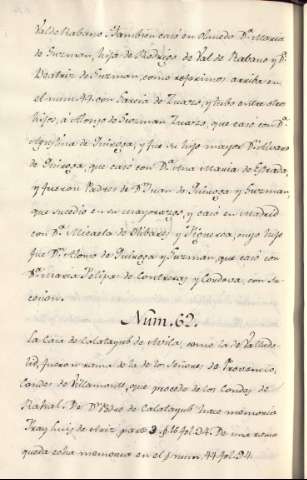 Val de Rabano. Tambien casó en Olmedo Dª Maria
de Guzman, hija de Rodrigo de Val de Rabano y Dª
Beatriz de Guzman, como referimos arriba en
el num 44. con Garcia de Tuazo, y tubo entre otros
hijos, a Alonso de Guzman Tuazo, que casó con Dª
de Quiroga, y fue su hijo mayor Dn Alvaro
de Quiroga, que casó con Dª Ana Maria de Estrada,
y fueron Padres de Dn Juan de Quiroga y Guzman,
que sucedio en su mayorazgo, y casó en Madrid
con Dª Micaela de Olibares y Figueroa, cuyo hijo
fue Dn Alonso de Quiroga y Guzman, que casó con
Dª Maria Felipa de Contreras y Cordova, con Su-
cesion.
Num. 62.
La Casa de Calatayub de Avila, como la de Vallado-
lid, fueron rama de la de los Señores de Provencio,
Condes de Villamonte, que procede de los Condes de
Rl. De Dn Pedro de Calatayub hace memoria
Fray Luis de Ariz part 3. fol. 24. De una rama
queda echa memoria en el num. 44 fol. 24.